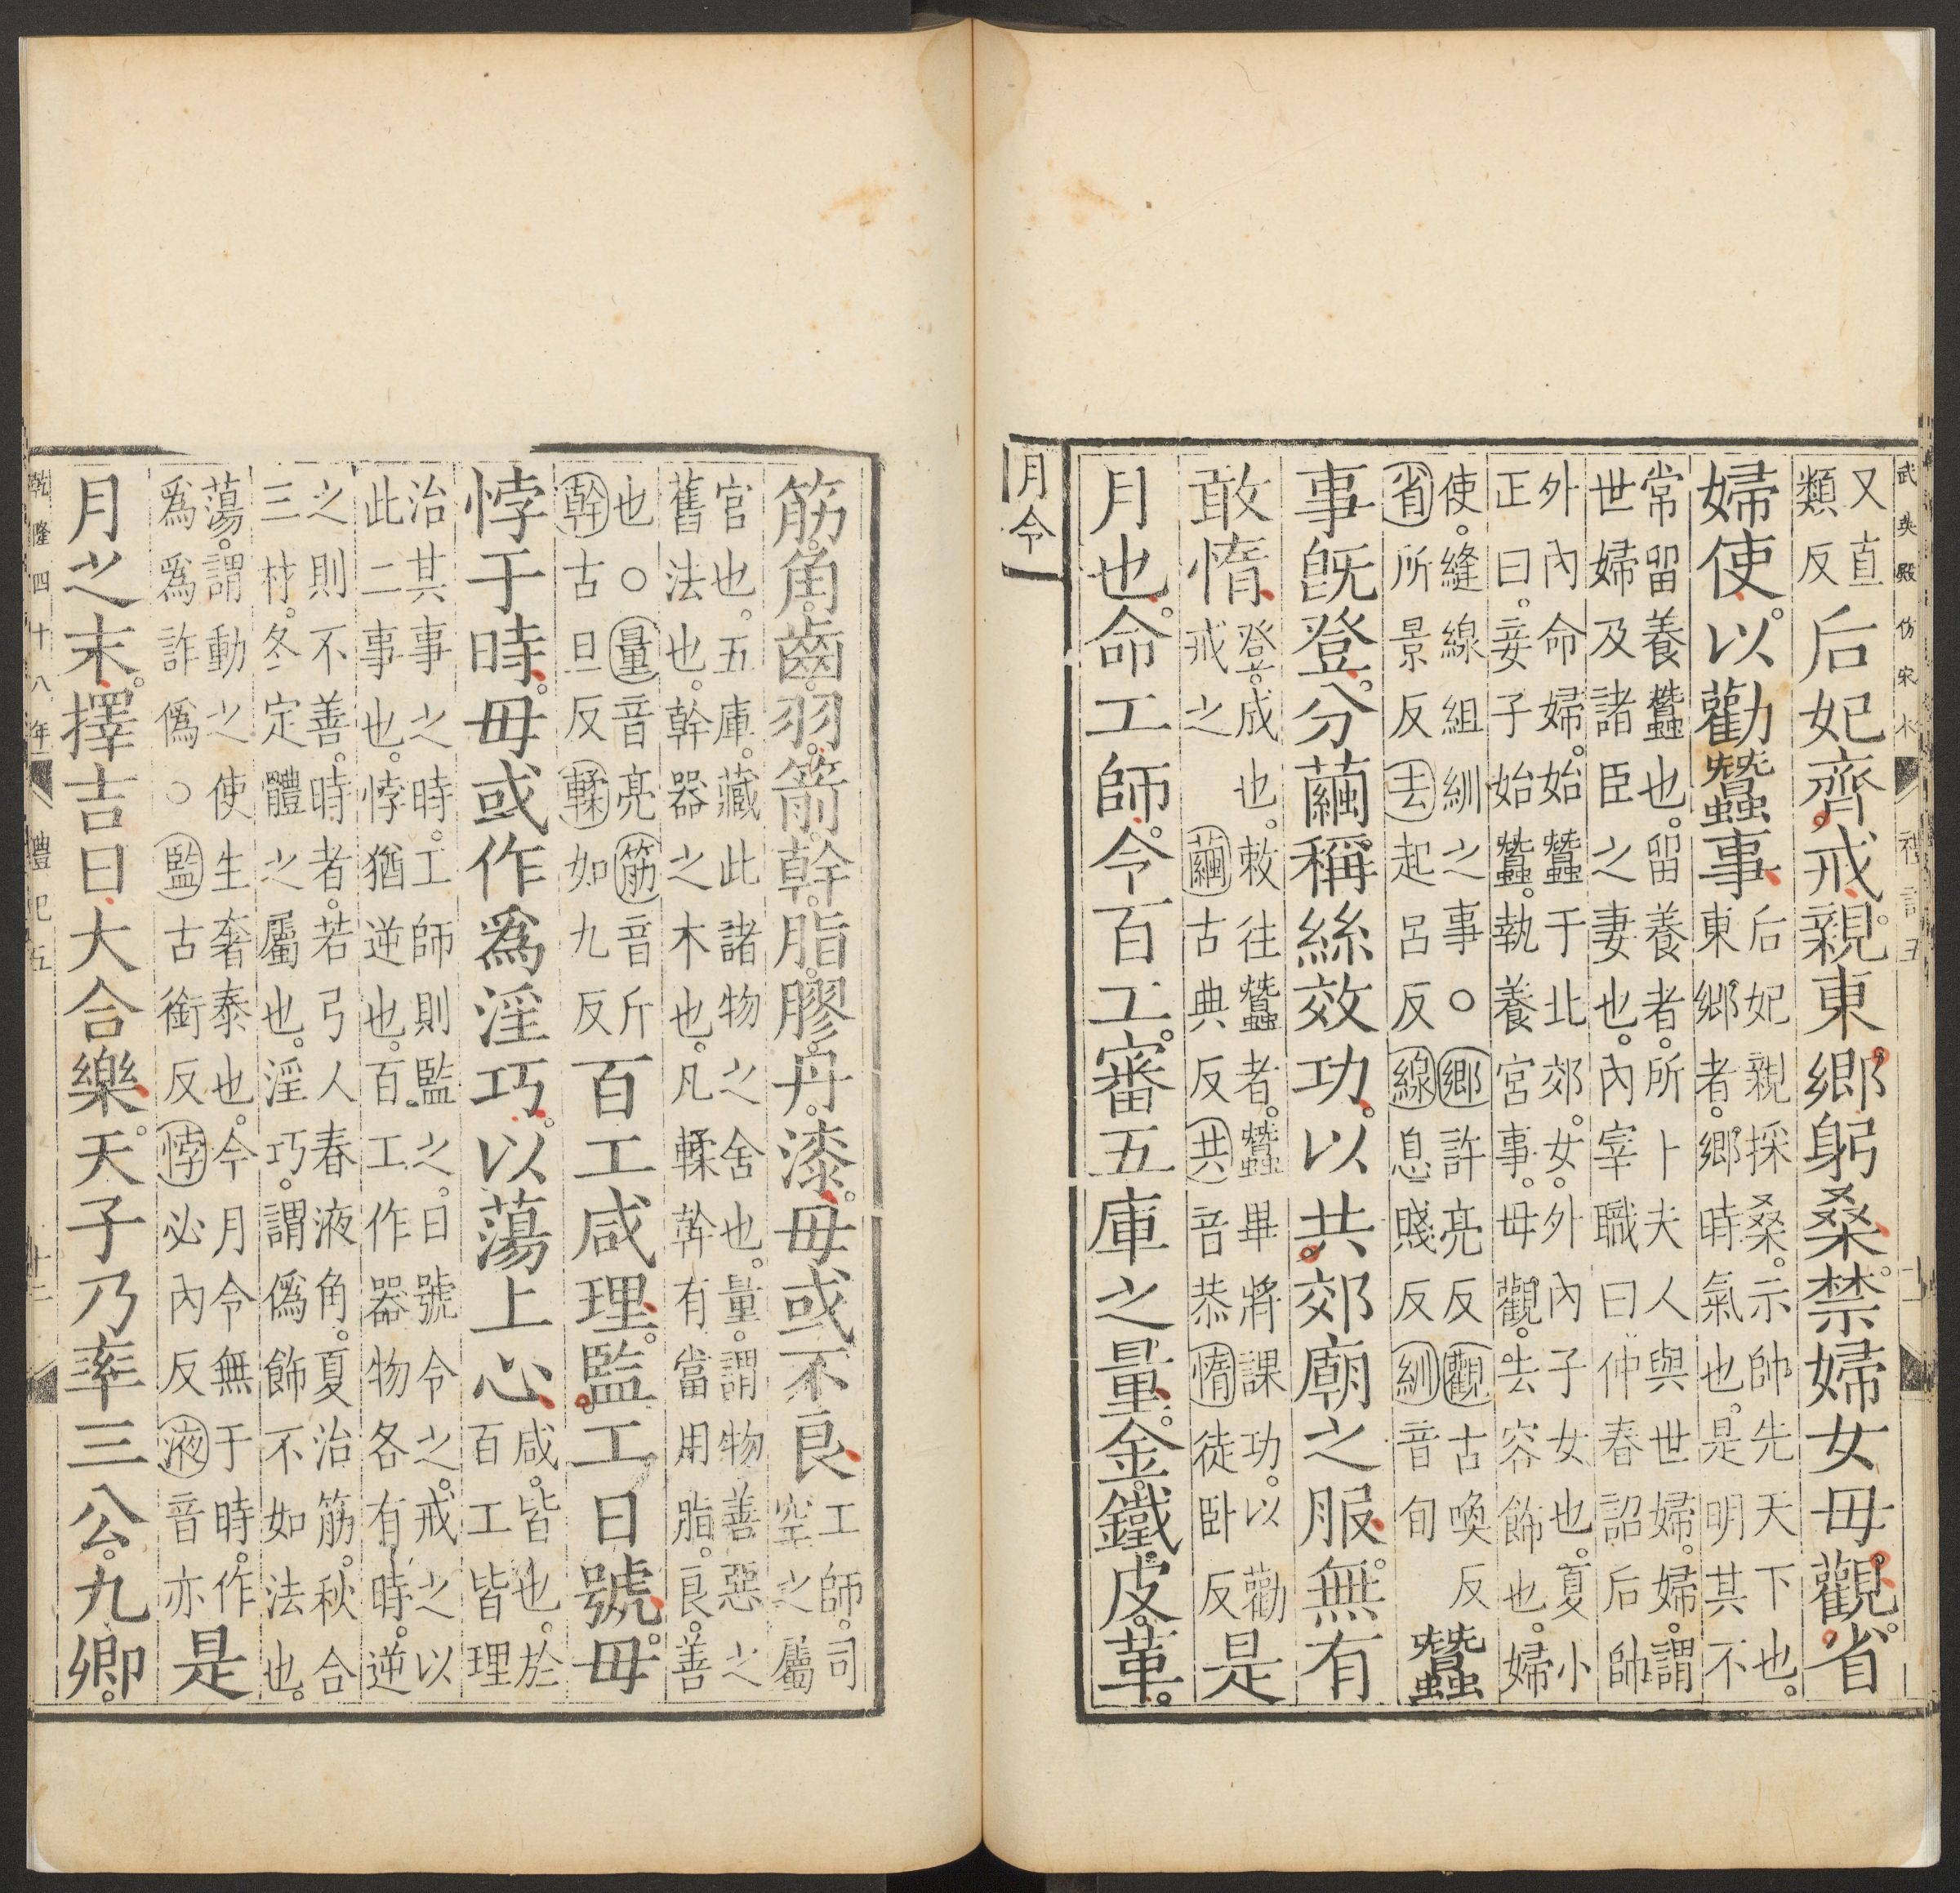 武英殿仿宋本 禮記五 十一
又直類反后妃齊戒。親東鄉躬桑。禁婦女毋觀。省
婦使。以勸蠶事后妃親採桑。示帥先天下也。東鄉者。鄉時氣也。是明其不
常留養蠶也。留養者。所卜夫人與世婦。婦。謂
世婦及諸臣之妻也。內宰職曰仲春詔后帥
外內命婦。始蠶于北郊。女。外內子女也。夏小
正曰。妾子始蠶。執養宮事。毋觀。去容飾也。婦
使。縫線組紃之事○鄉許亮反觀古喚反
省所景反去起呂反線息賤反紃音旬蠶
事旣登。分繭稱絲效功。以共郊廟之服。無有
敢惰登。成也。敕往蠶者。蠶畢將課功。以勸
戒之繭古典反共音恭惰徒卧反是
月也。命工師。令百工。審五庫之量。金。鐵。皮。革。
月令
筋。角。齒。羽。箭。幹。脂。膠。丹。漆。毋或不良工師。司
空之屬
官也。五庫。藏此諸物之舍也。量。謂物善惡之
舊法也。幹。器之木也。凡輮幹有當用脂。良。善
也。○量音亮筋音斤
幹古旦反輮如九反百工咸理。監工日號。毋
悖于時。毋或作爲淫巧。以蕩上心咸。皆也。於
百工皆理
治其事之時。工師則監之。日號令之。戒之以
此二事也。悖猶逆也。百工作器物各有時。逆
之則不善。時者。若弓人春液角。夏治筋。秋合
三材。冬定體之屬也。淫巧。謂僞飾不如法也。
蕩。謂動之使生奢泰也。今月令無于時。作
爲爲詐僞○監古銜反悖必內反液音亦是
月之末。擇吉日大合樂。天子乃率三公。九卿。
乾隆四十八年 禮記五 十二